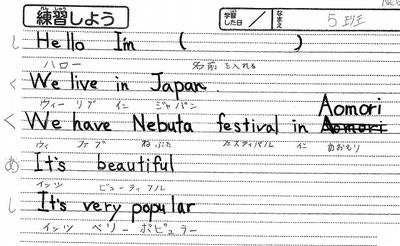 練習しよう 学習した日 / なまえ 5班
し Hello I'm ( )
ハロー 名前を入れる
く We live in Japan.
ウィー リブ イン ジャパン
Aomori
く We have Nebuta festival in Aomori
ウィ ハブ ねぶた フェスティバル イン あおもり
あ It's beautiful
イッツ ビューティフル
し It's very popular
イッツ ベリー ポピュラー